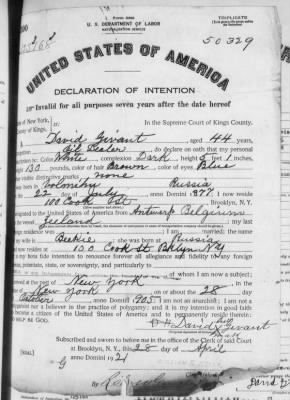 TRIPLICATE
U. S. DEPARTMENT OF LABOR
NATURALIZATION SERVICE
50329
UNITED STATES OF AMERICA
DECLARATION OF INTENTION
Invalid for all purposes seven years after the date hereof
of New York,
County of Kings.
In the Supreme Court of Kings County.
David Givant, aged 44 years,
occupation Oil Dealer, do declare on oath that my personal
description is: Color White, complexion Dark, height 5 feet inches,
130 pounds, color of hair Brown, color of eyes Blue
other visible distinctive marks none
Russia
22 day of July, anno Domini 1877; I now reside
100 Cook St Brooklyn, N.Y.
emigrated to the United States of America from Antwerp Belgium
Zeeland; my last
I am married; the name
of my wife is Beckie; she was born at Russia
and now resides at 100 Cook St Bklyn NY
It is my bona fide intention to renounce forever all allegiance and fidelity to any foreign
prince, potentate, state, or sovereignty, and particularly to
of whom I am now a subject;
I arrived at the port of New York, in the
State of New York, on or about the 28 day
of October, anno Domini 1905; I am not an anarchist; I am not a
polygamist nor a believer in the practice of polygamy; and it is my intention in good faith
to become a citizen of the United States of America and to permanently reside therein:
SO HELP ME GOD.
David Givant
Subscribed and sworn to before me in the office of the Clerk of said Court
[SEAL] at Brooklyn, N. Y., this 28 day of April
anno Domini 1921
By